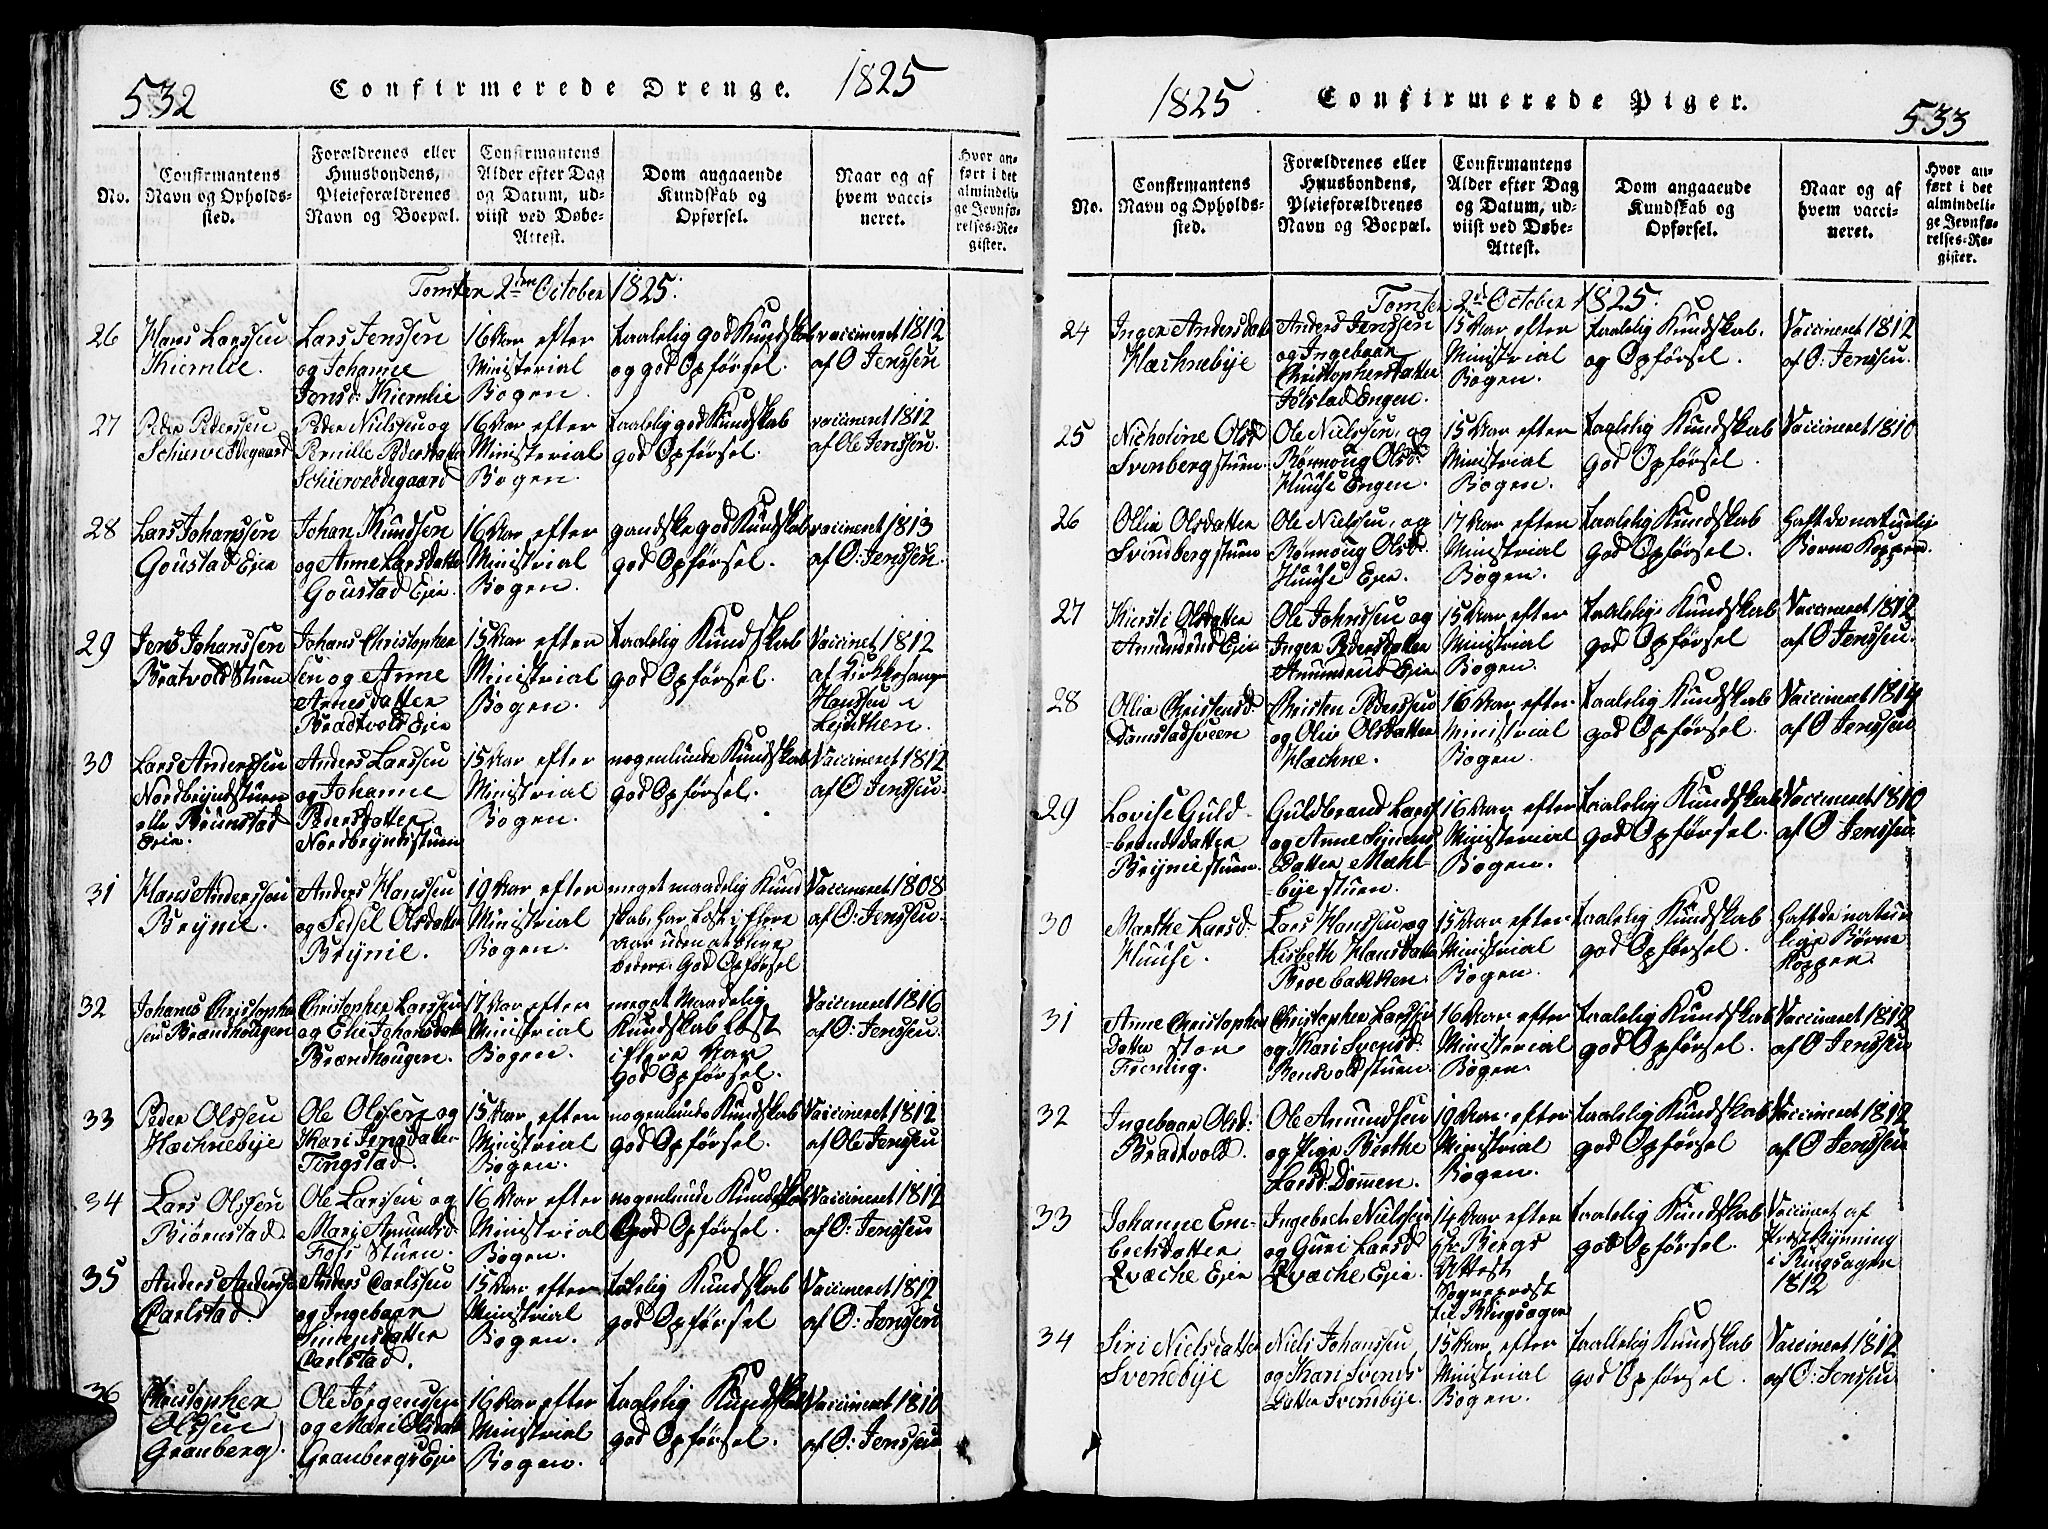 532
Confirmerede Drenge.
1825
No.
Confirmantens
Navn og Opholds-
sted.
Forældrenes eller
Huusbondens,
Pleieforældrenes
Navn og Boepæl.
Confirmantens
Alder efter Dag
og Datum, ud-
viist ved Døbe-
Attest.
Dom angaaende
Kundskab og
Opførsel.
Naar og af
hvem vacci-
neret.
Hvor an-
ført i det
almindeli-
ge Jevnfø-
relses-Re-
gister.
Tomter 2den October 1825.
26
Hans Larssen
Kiemlie.
Lars Jenssen
og Johanne
Jonsd: Kiemlie
16 Aar efter
Ministerial
Bogen.
taalelig god Kundskab
og god Opførsel.
vaccineret 1812
af O: Jenssen
27
Peder Pedersen
Schierveødegaard
Peder Nielssen og
Pernille Pedersdatter
Schierveødegaard
16 Aar efter
Ministerial
Bogen.
taalelig god Kundskab
god Opførsel.
vaccineret 1812
af Ole Jenssen.
28
Lars Johanssen
Goustad Eie
Johan Knudsen
og Anne Larsdatter
Goustad Eie.
16 Aar efter
Ministerial
Bogen.
gandske god Kundskab
god Opførsel.
vaccineret 1813
af O: Jenssen.
29
Jens Johanssen
Bratvold Stuen
Johans Christopher
sen og Anne
Arnesdatter
Bradtvold Eie
15 Aar efter
Ministrial
Bogen.
taalelig Kundskab
god Opførsel.
Vaccinet 1812
af Kirkesanger
Hanssen i
Leuthen.
30
Lars Anderssen
Nordbryndstuen
elle Brunstad
Eie.
Anders Larssen
og Johanne
Pedersdatter
Nordbryndsstuen
15 Aar efter
Ministrial
Bogen.
nogenlunde Kundskab
god Opførsel.
Vaccineret 1812
af O Jenssen.
31
Hans Anderssen
Brynie.
Anders Hanssen
og Sedsel Olsdatter
Brynie.
19 Aar efter
Ministrial
Bogen.
meget maadelig Kund
skab, har Læst i flere
Aar uden at blive
bedere. God Opførsel
Vaccineret 1808
af O: Jenssen.
32
Johans Christopher
sen Brændhougen
Christopher Larssen
og Eli Johansdatter
Brændhougen.
17 Aar efter
Ministrial
Bogen.
meget Maadelig
Kundskab Læst
i flere Aar
God Opførsel.
Vaccineret 1816
af O: Jenssen.
33
Peder Olssen
Hæchnebye
Ole Olssen og
Kari Jensdatter
Tingstad.
15 Aar efter
Ministrial
Bogen.
nogenlunde Kundskab
god Opførsel.
Vaccineret 1812
af Ole Jenssen
34
Lars Olssen
Biørnstad.
Ole Larssen og
Mari Amundsd
Foss Stuen.
16 Aar efter
Ministrial
Bogen.
nogenlunde Kundskab
God Opførsel.
Vaccineret 1812
af O: Jenssen
35
Anders Anderss
Carlstad.
Anders Carlssen
og Ingebaar
Simensdatter
Carlstad.
15 Aar efter
Ministrial
Bogen.
talelig Kundskab
god Opførsel
Vaccineret 1812
af O: Jenssen
36
Christopher
Olssen
Granberg.
Ole Jørgenssen
og Mari Olsdatt
Granbergs Eie
16 Aar efter
Ministrial
Bogen.
taalelig Kundskab
god Opførsel.
Vaccineret 1810
af O: Jenssen
1825
Confirmerede Piger.
533
No.
Confirmantens
Navn og Opholds-
sted.
Forældrenes eller
Huusbondens,
Pleieforældrenes
Navn og Boepæl.
Confirmantens
Alder efter Dag
og Datum, ud-
viist ved Døbe-
Attest.
Dom angaaende
Kundskab og
Opførsel.
Naar og af
hvem vacci-
neret.
Hvor an-
ført i det
almindeli-
ge Jevnfø-
relses-Re-
gister.
Tomter 2d October 1825.
24
Inger Andersdatt
Hæchnebye
Anders Jenssen
og Ingebaar
Christophersdatter
Jølstad Engen.
15 Aar efter
Ministrial
Bogen.
taalelig Kundskab.
og Opførsel.
Vaccineret 1812
af O: Jenssen.
25
Nicholine Olsd
Svenberg stuen.
Ole Nielssen, og
Rønnoug Olsd:
Huuse Engen.
15 Aar efter
Ministrial
Bogen.
taalelig Kundskab
god Opførsel.
Vaccineret 1810
26
Ollia Olsdatter
Svindberg stuen
Ole Nielssen, og
Rønnoug Olsd.
Huuse Eie.
17 Aar efter
Ministrial
Bogen.
taalelig Kundskab
god Opførsel.
haft de natuelie
Børne Kopper.
27
Kiersti Olsdatter
Amundrud Eie
Ole Johnssen og
Inger Pedersdatter
Amundrud Eie
15 Aar efter
Ministrial
Bogen.
taalelig Kundskab
god Opførsel
Vaccineret 1812
af O Jenssen.
28
Ollia Christensd.
Damstadsveen
Christen Pederssen
og Oliv Olsdatter
Hæchne.
16 Aar efter
Ministrial
Bogen.
taalelig Kundskab
god Opførsel.
Vaccineret 1814
af O Jenssen
29
Lovise Guld-
-brandsdatter
Brynie stuen.
Guldbrand Larss
og Anne Simens
Datter Mæhl-
-bye stuen.
16 Aar efter
Ministerial
Bogen.
taalelig Kundskab
god Opførsel.
Vaccineret 1810
af O Jenssen
30
Marthe Larsd.
Huuse.
Lars Hanssen og
Lisbeth Hansdatte
Broebakken.
15 Aar efter
Ministrial
Bogen.
taalelig Kundskab
god Opførsel.
haft de natur
lige Børne
Kopper.
31
Anne Christopher
Datter stor
Frening.
Christopher Larssen
og Kari Svensd.
Rendvoldstuen.
16 Aar efter
Ministerial
Bogen.
taalelig Kundskab
god Opførsel.
Vaccineret 1812
af O Jenssen
32
Ingebaar Olsd:
Bradtvold.
Ole Amundsen
og Pige Birthe
Larsd: Dommen.
19 Aar efter
Ministrial
Bogen.
taalelig Kundskab
god Opførsel
Vaccineret 1812
af O Jenssen
33
Johanne Em-
bretsdatter
Qvæche Eie
Ingebrch Nielssen
og Guri Larsd
Qvæche Eie.
14 Aar efter
Bergs
Attest
Sogneprest
til Ringsager
taalelig Kundskab
god Opførsel.
Vaccinet af
Prost Rynning
i Ringsagen
1812
34
Siri Nielsdatter
Svenebye
Niels Johanssen
og Kari Svens
Datter Svenebye.
15 Aar, efter
Ministrial
Bogen.
taalelig Kundskab
god Opførsel.
Vaccineret 1812
af O: Jenssen